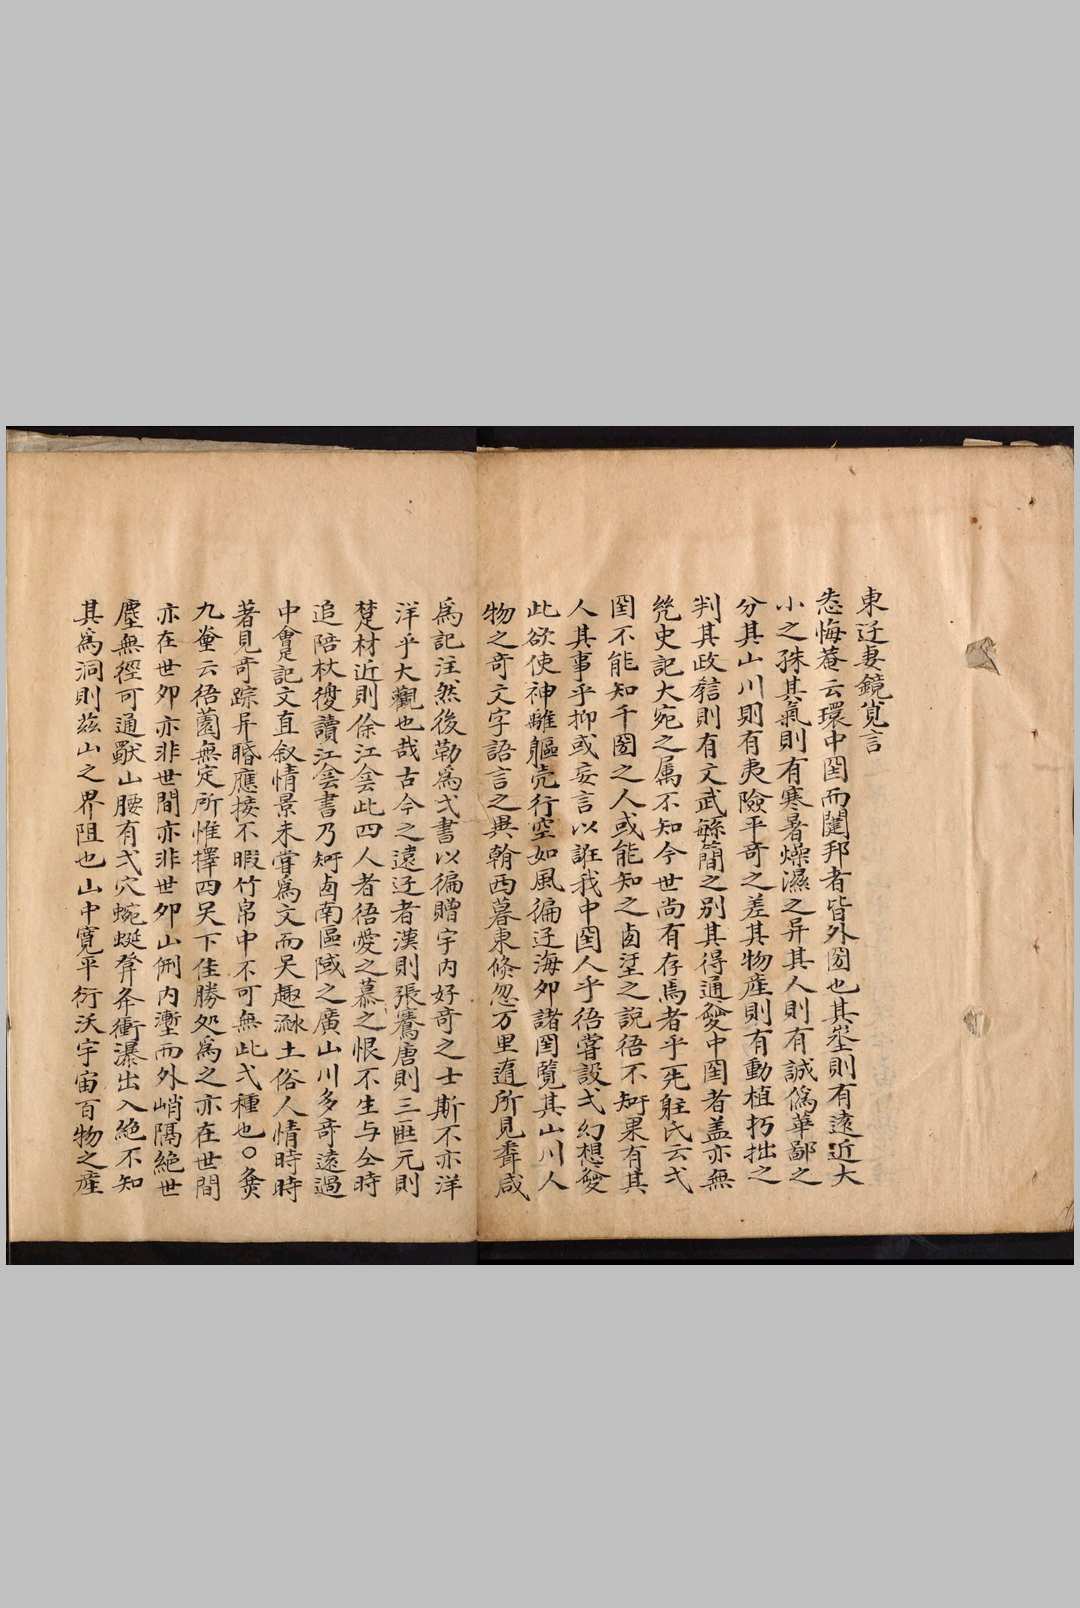 東迂妻鏡㝵言
悉悔菴云環中国而建邦者皆外国也其㘴則有遠近大
小之殊其氣則有寒暑燥濕之异其人則有誠僞華鄙之
分其山川則有夷險平奇之差其物産則有動植朽拙之
判其政
則有文武
簡之別其得通
中国者盖亦無
史記大宛之属不知今世尚有存焉者乎死
氏云弍
国不能知千国之人或能知之卤
之說
不知果有其
人其事乎抑或妄言以誑我中国人乎
嘗設弍幻想
此欲使神離軀壳行空如風徧迂海夘諸国覽其山川人
物之竒文字語言之異翰西暮東倏忽万里
所見聋咸
爲記注然後勒爲弍書以徧贈宇内好竒之士斯不亦洋
洋乎大觀也哉古今之遠迂者漢則張騫唐則三
元則
楚材近則徐江仝此四人者
愛之慕之恨不生与仝時
追陪杖
讀江仝書乃知卤南區域之廣山川多竒遠過
中
記文直叙情景未嘗爲文而
趣
土俗人情時時
著見竒踪异
應接不暇竹帛中不可無此弍種也〇
九
云
園無定所惟擇四
下佳勝処爲之亦在世間
亦在世夘亦非世間亦非世夘山
内
而外峭隔絶世
塵無徑可通獸山腰有弍穴蜿蜒
衝瀑出入絶不知
其爲洞則茲山之界阻也山中寬平衍沃宇宙百物之産